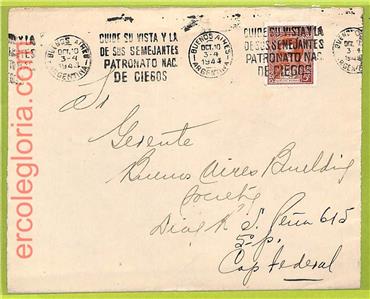 CUIDE SU VISTA Y LA
DE SUS SEMEJANTES
PATRONATO NAC.
DE CIEGOS
BUENOS AIRES
OCT. 10
3-4
1943
ARGENTINA
CUIDE SU VISTA Y LA
DE SUS SEMEJANTES
PATRONATO NAC.
DE CIEGOS
BUENOS AIRES
OCT. 10
3-4
1943
ARGENTINA
Sr
Gerente
Buenos Aires Building
Society
Diag. R. S. Peña 615
5º p.
Cap Federal
ercolegloria.com